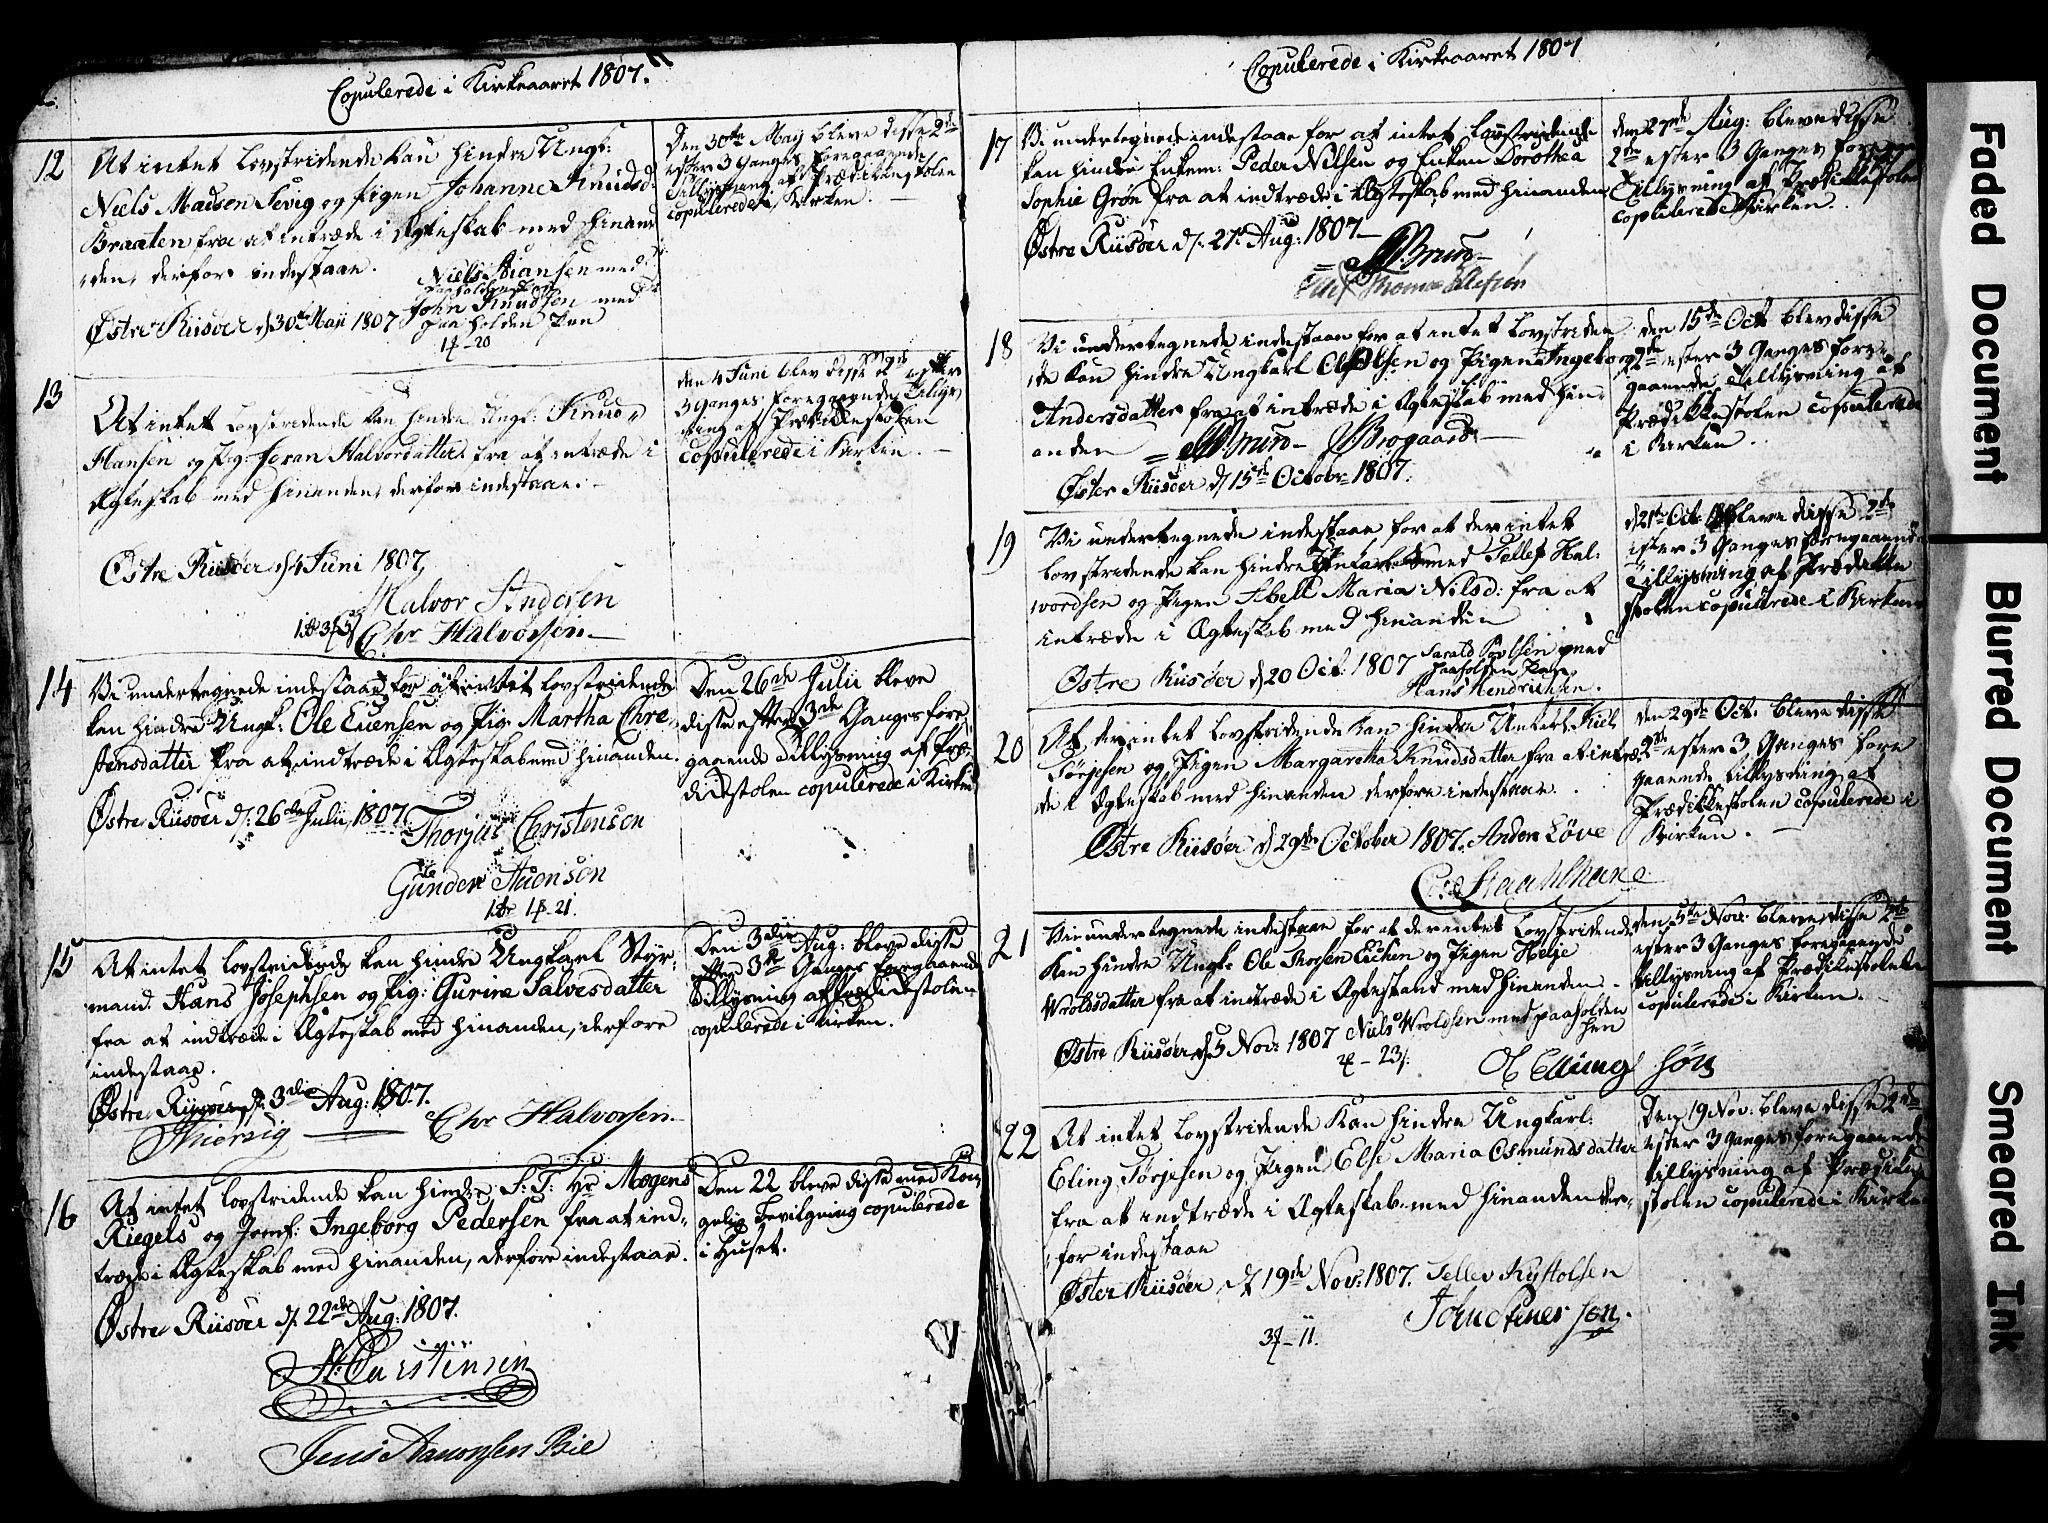 Copulerede i Kirkeaaret 1807.
12
At intet Lovstridende kan hindre Ungk:
Niels Madsen Sevig og Pigen Johanne Knudsd:
Braaten fra at intræde i Ægteskab med hinan
den, derfor indestaae.
Niels Stiansen med
paaholden Pen
Østre Riisøer d 30te Maji 1807
John Knudsen med
paa holden Pen
Den 30te Maij bleve disse 2de
efter 3 Ganges foregaaende
Tillysning af Prædikkestolen
copulerede i Kirken.
13
At intet Lovstridende kan hindre Ungk: Knud
Hansen og Pig: Joran Halvorsdatter fra at intræde i
Ægteskab med hinanden, derfor indestaae.
Østre Riisøer d 4 Juni 1807
Halvor Andersen
Chr Halvorsen
den 4 Juni blev disse 2de efter
3 Ganges foregaaende Tillys
ning af Prædikestolen
copulerede i Kirken.
14
Vi undertegnede indestaae for at intet Lovstridende
kan hindre Ungk: Ole Euensen og Pig: Martha Chre
stensdatter fra at indtræde i Ægteskab med hinanden.
Østre Riisøer d: 26de Julii 1807.
Christensen
Gunder Auenson
Den 26de Julii bleve
disse efter 3de Ganges fore
gaaende Tillysning af Præ
dikestolen copulerede i Kirken
15
At intet Lovstridende kan hindre Ungkarl Styr
mand Hans Josephsen og Pig: Gurine Salvesdatter
fra at indtræde i Ægteskab med hinanden, derfore
indestaae.
Østre Riisøer d: 3die Aug: 1807.
Chr Halvorsen
Den 3die Aug: bleve disse
efter 3de Ganges foregaaende
Tillysning af Prædikestolen
copulerede i Kirken.
16
At intet Lovstridende kan hindre S. T: Hr Mogens
Riegels og Jomf: Ingeborg Pedersen fra at ind
træde i Ægteskab med hinanden, derfore indestaae.
Østre Riisøer d. 22de Aug: 1807.
Carstensen
Jens Aanonsen Bie
Den 22 bleve disse med Kon
gelig Bevilgning copulerede
i Huset.
Copulerede i Kirkeaaret 1807
17
Vi undertegnede indestaae for at intet Lovstridende
kan hindre Enkem: Peder Nilsen og Enken Dorothea
Sophie Grøn fra at indtræde i Ægteskab med hinanden
Østre Riisøer d. 27de Aug: 1807
Bruun
Thomas Ellefsen
den 27de Aug: bleve disse
2de efter 3 Ganges foregaaende
Tillysning af Prædikkestolen
copulerede i Kirken.
18
Vi undertegnede indestaae for at intet Lovstriden
de kan hindre Ungkarl Ole Olsen og Pigen Ingeborg
Andersdatter fra at intræde i Ægteskab med hin
anden
Bruun Brogaard
Øster Riisøer d 15de Octobr 1807.
den 15de Oct. blev disse
2de efter 3 Ganges fore
gaaende Tillysning af
Prædikkestolen copulerede
i Kirken.
19
Vi undertegnede indestaae for at der intet
lovstridende kan hindre Smed Tellef Hal
wordsen og Pigen Abell Maria Nilsd: fra at
intræde i Ægteskab med hinanden
Østre Riisøer d 20 Oct. 1807
med
paaholden Pen
Hans Hendrichsen.
d 21de Oct. bleve disse 2de
efter 3 Ganges foregaaende
Tillysning af Prædikke
stolen copulerede i Kirken
20
At der intet Lovstridende kan hindre Unkarl
Tørjesen og Pigen Margaretha Knudsdatter fra at intræ
de i Ægteskab med hinanden derfore indestaae.
Østre Riisøer d 29de October 1807. Anders Løve
Staahlhane
den 29de Oct. bleve disse
2de efter 3 Ganges fore
gaaende tillysning af
Prædikkestolen copulerede i
Kirken.
21
Vi undertegnede indestaae for at der intet Lovstridende
kan hindre Ungk: Ole Thorsen og Pigen Helje
Wroldsdatter fra at indtræde i Ægtestand med hinanden.
Østre Riisøer d. 5 Nov: 1807 Niels Wroldsen med paaholden
Pen
Ellingsøn
den 5te Nov: bleve disse 2de
efter 3 Ganges foregaaende
tillysning af Prædikestolen
copulerede i Kirken.
22
At intet Lovstridende kan hindre Ungkarl:
Eling Tørjesen og Pigen Else Maria Osmundsdatter
fra at indtræde i Ægteskab med hinanden der
for indestaae
Øster Riisøer d 19de Nov: 1807. Tellev Kystolsen
3 - 11.
Den 19 Nov: bleve disse 2de
efter 3 Ganges foregaaende
tillysning af Prædike
stolen copulerede i Kirken
Faded Document
Blurred Document
Smeared Ink